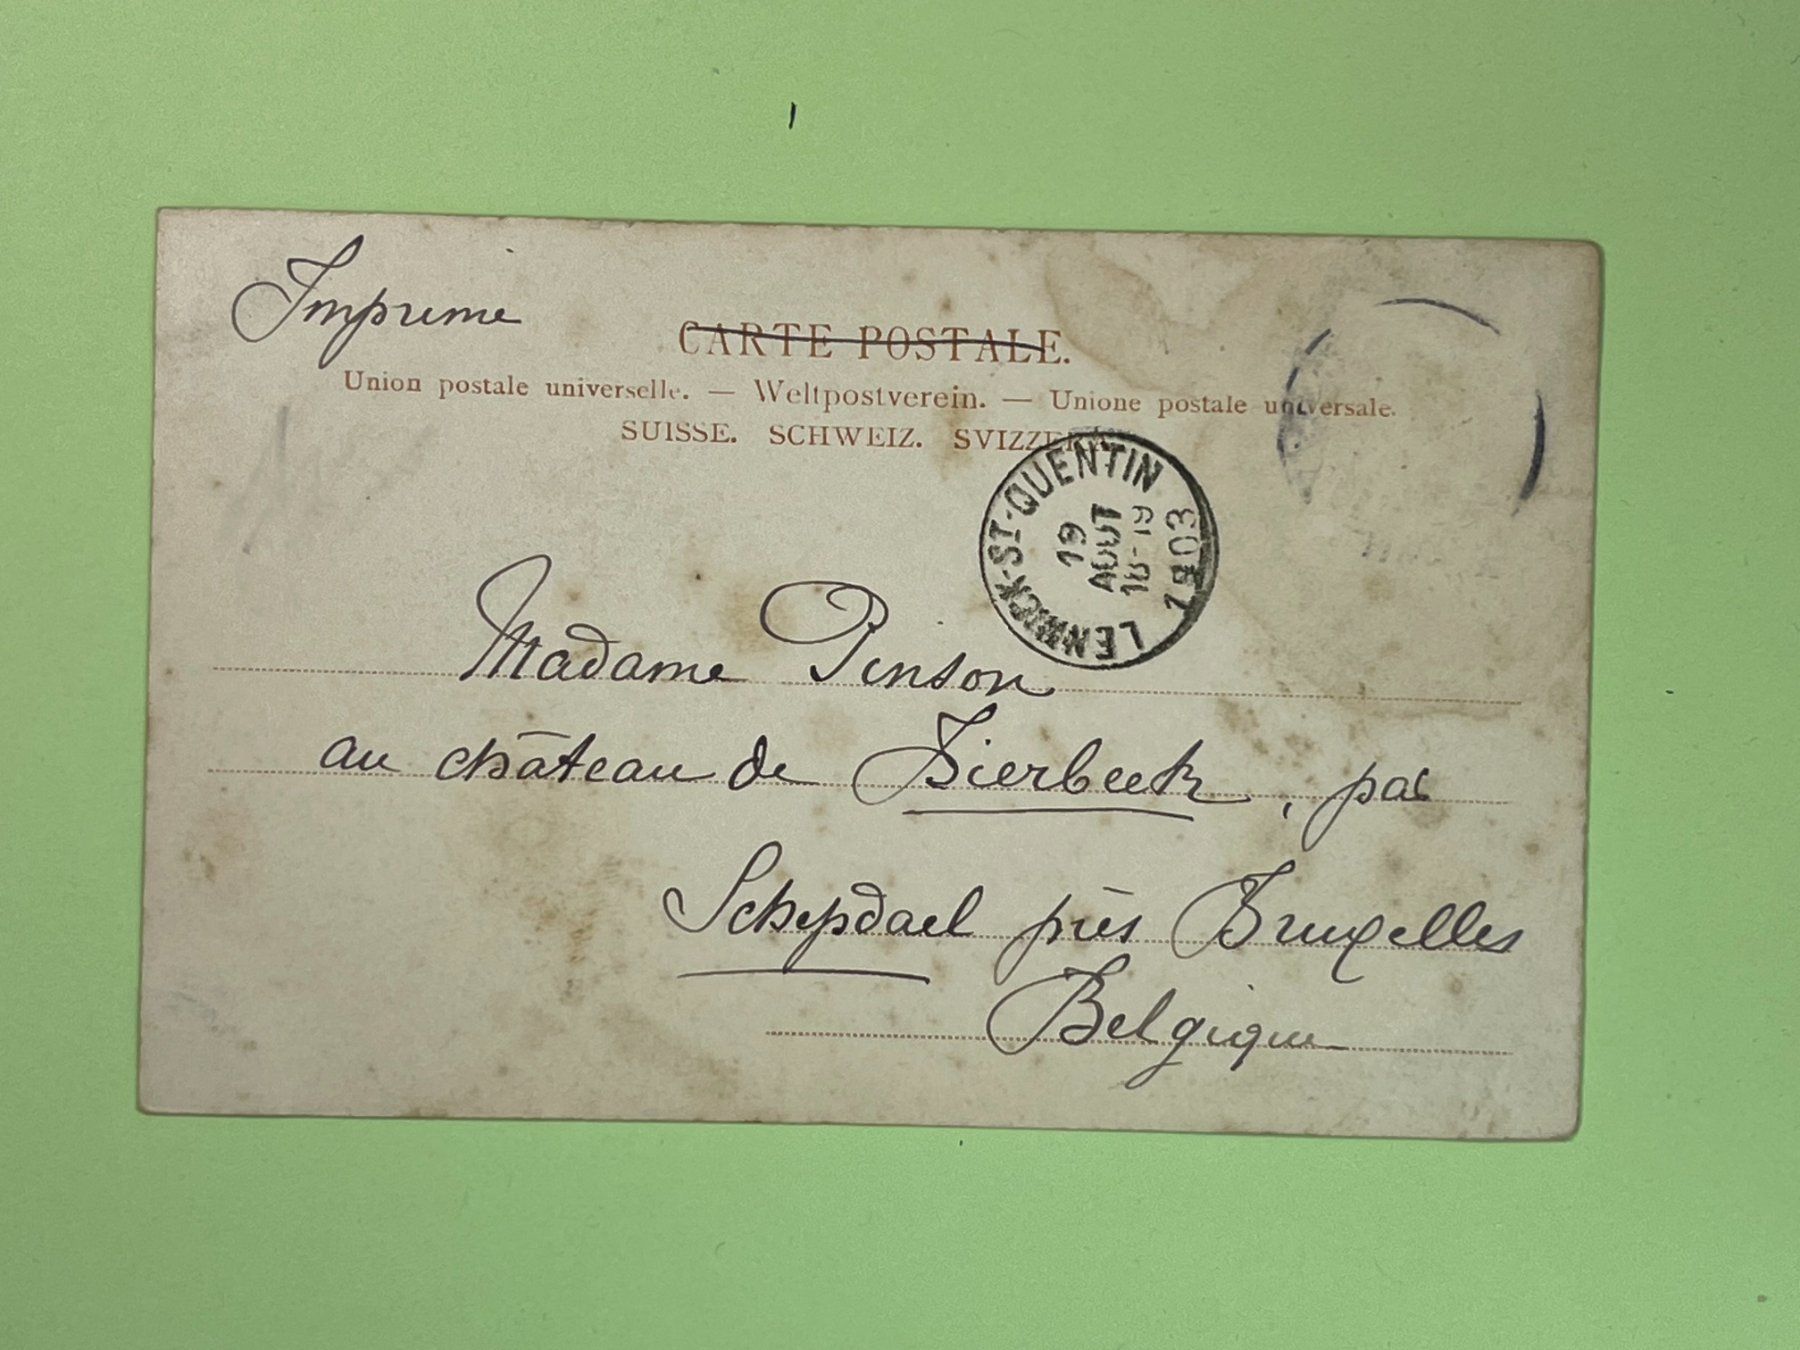 Imprimé
CARTE POSTALE.
Union postale universelle. — Weltpostverein. — Unione postale universale.
SUISSE. SCHWEIZ. SVIZZERA.
LENNICK-ST-QUENTIN
19
AOUT
18-19
1903
Madame Pinson
au château de Bierbeek, par
Schepdael près Bruxelles
Belgique